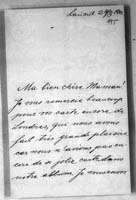 Ma bien chère Maman!
Je vous remercie beaucoup
pour vos carte encore de
Londres, qui nous avons
fait très grands plaisir
car nous n'avions pas en-
core de si jolie carte dans
notre album. Je